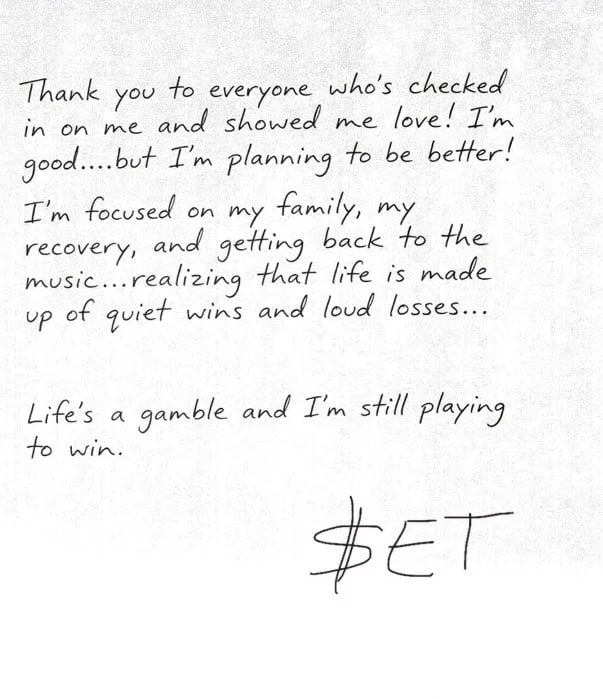 Thank you to everyone who's checked
in on me and showed me love! I'm
good....but I'm planning to be better!
I'm focused on my family, my
recovery, and getting back to the
music...realizing that life is made
up of quiet wins and loud losses...
Life's a gamble and I'm still playing
to win.
$ET